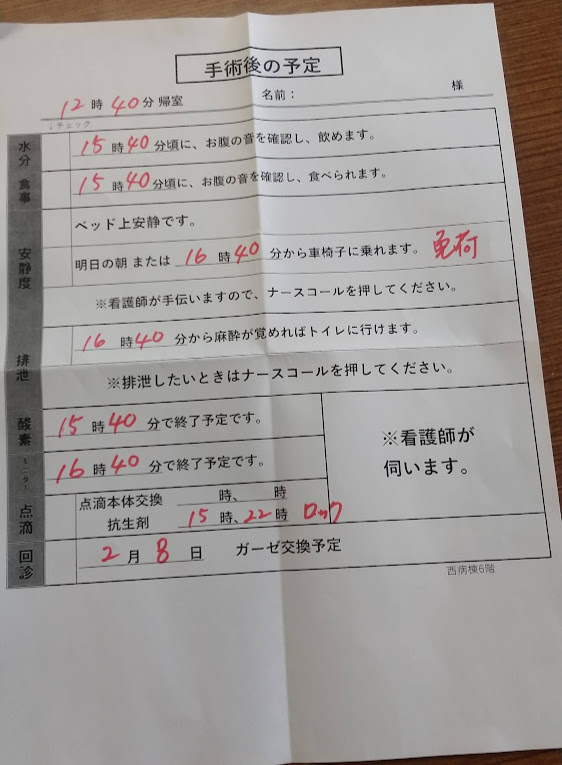 手術後の予定
12時40分 帰室 名前： 様
↓チェック
水分 15時40分頃に、お腹の音を確認し、飲めます。
食事 15時40分頃に、お腹の音を確認し、食べられます。
安静度 ベッド上安静です。
明日の朝 または 16時40分から車椅子に乗れます。 免荷
※看護師が手伝いますので、ナースコールを押してください。
排泄 16時40分から麻酔が覚めればトイレに行けます。
※排泄したいときはナースコールを押してください。
酸素 15時40分で終了予定です。
モニター 16時40分で終了予定です。
※看護師が
伺います。
点滴 点滴本体交換 時、 時
抗生剤 15時、22時 ロック
回診 2月8日 ガーゼ交換予定
西病棟6階